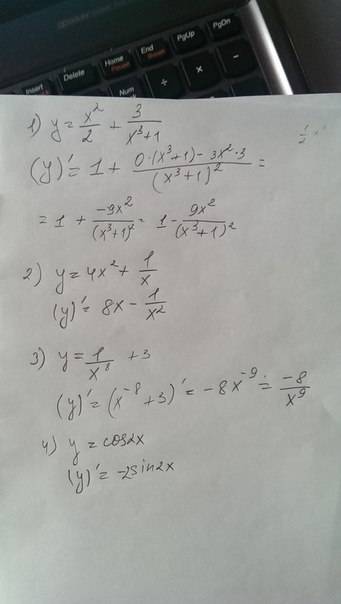 Insert Delete Home Pause End Break PgUp PgDn
Num
÷ × -
1) y = x²/2 + 3/(x³+1)
(y)' = 1 + (0·(x³+1) - 3x²·3)/(x³+1)² =
= 1 + (-9x²)/(x³+1)² = 1 - 9x²/(x³+1)²
2) y = 4x² + 1/x
(y)' = 8x - 1/x²
3) y = 1/x⁸ + 3
(y)' = (x⁻⁸ + 3)' = -8x⁻⁹ = -8/x⁹
4) y = cos2x
(y)' = -2sin2x